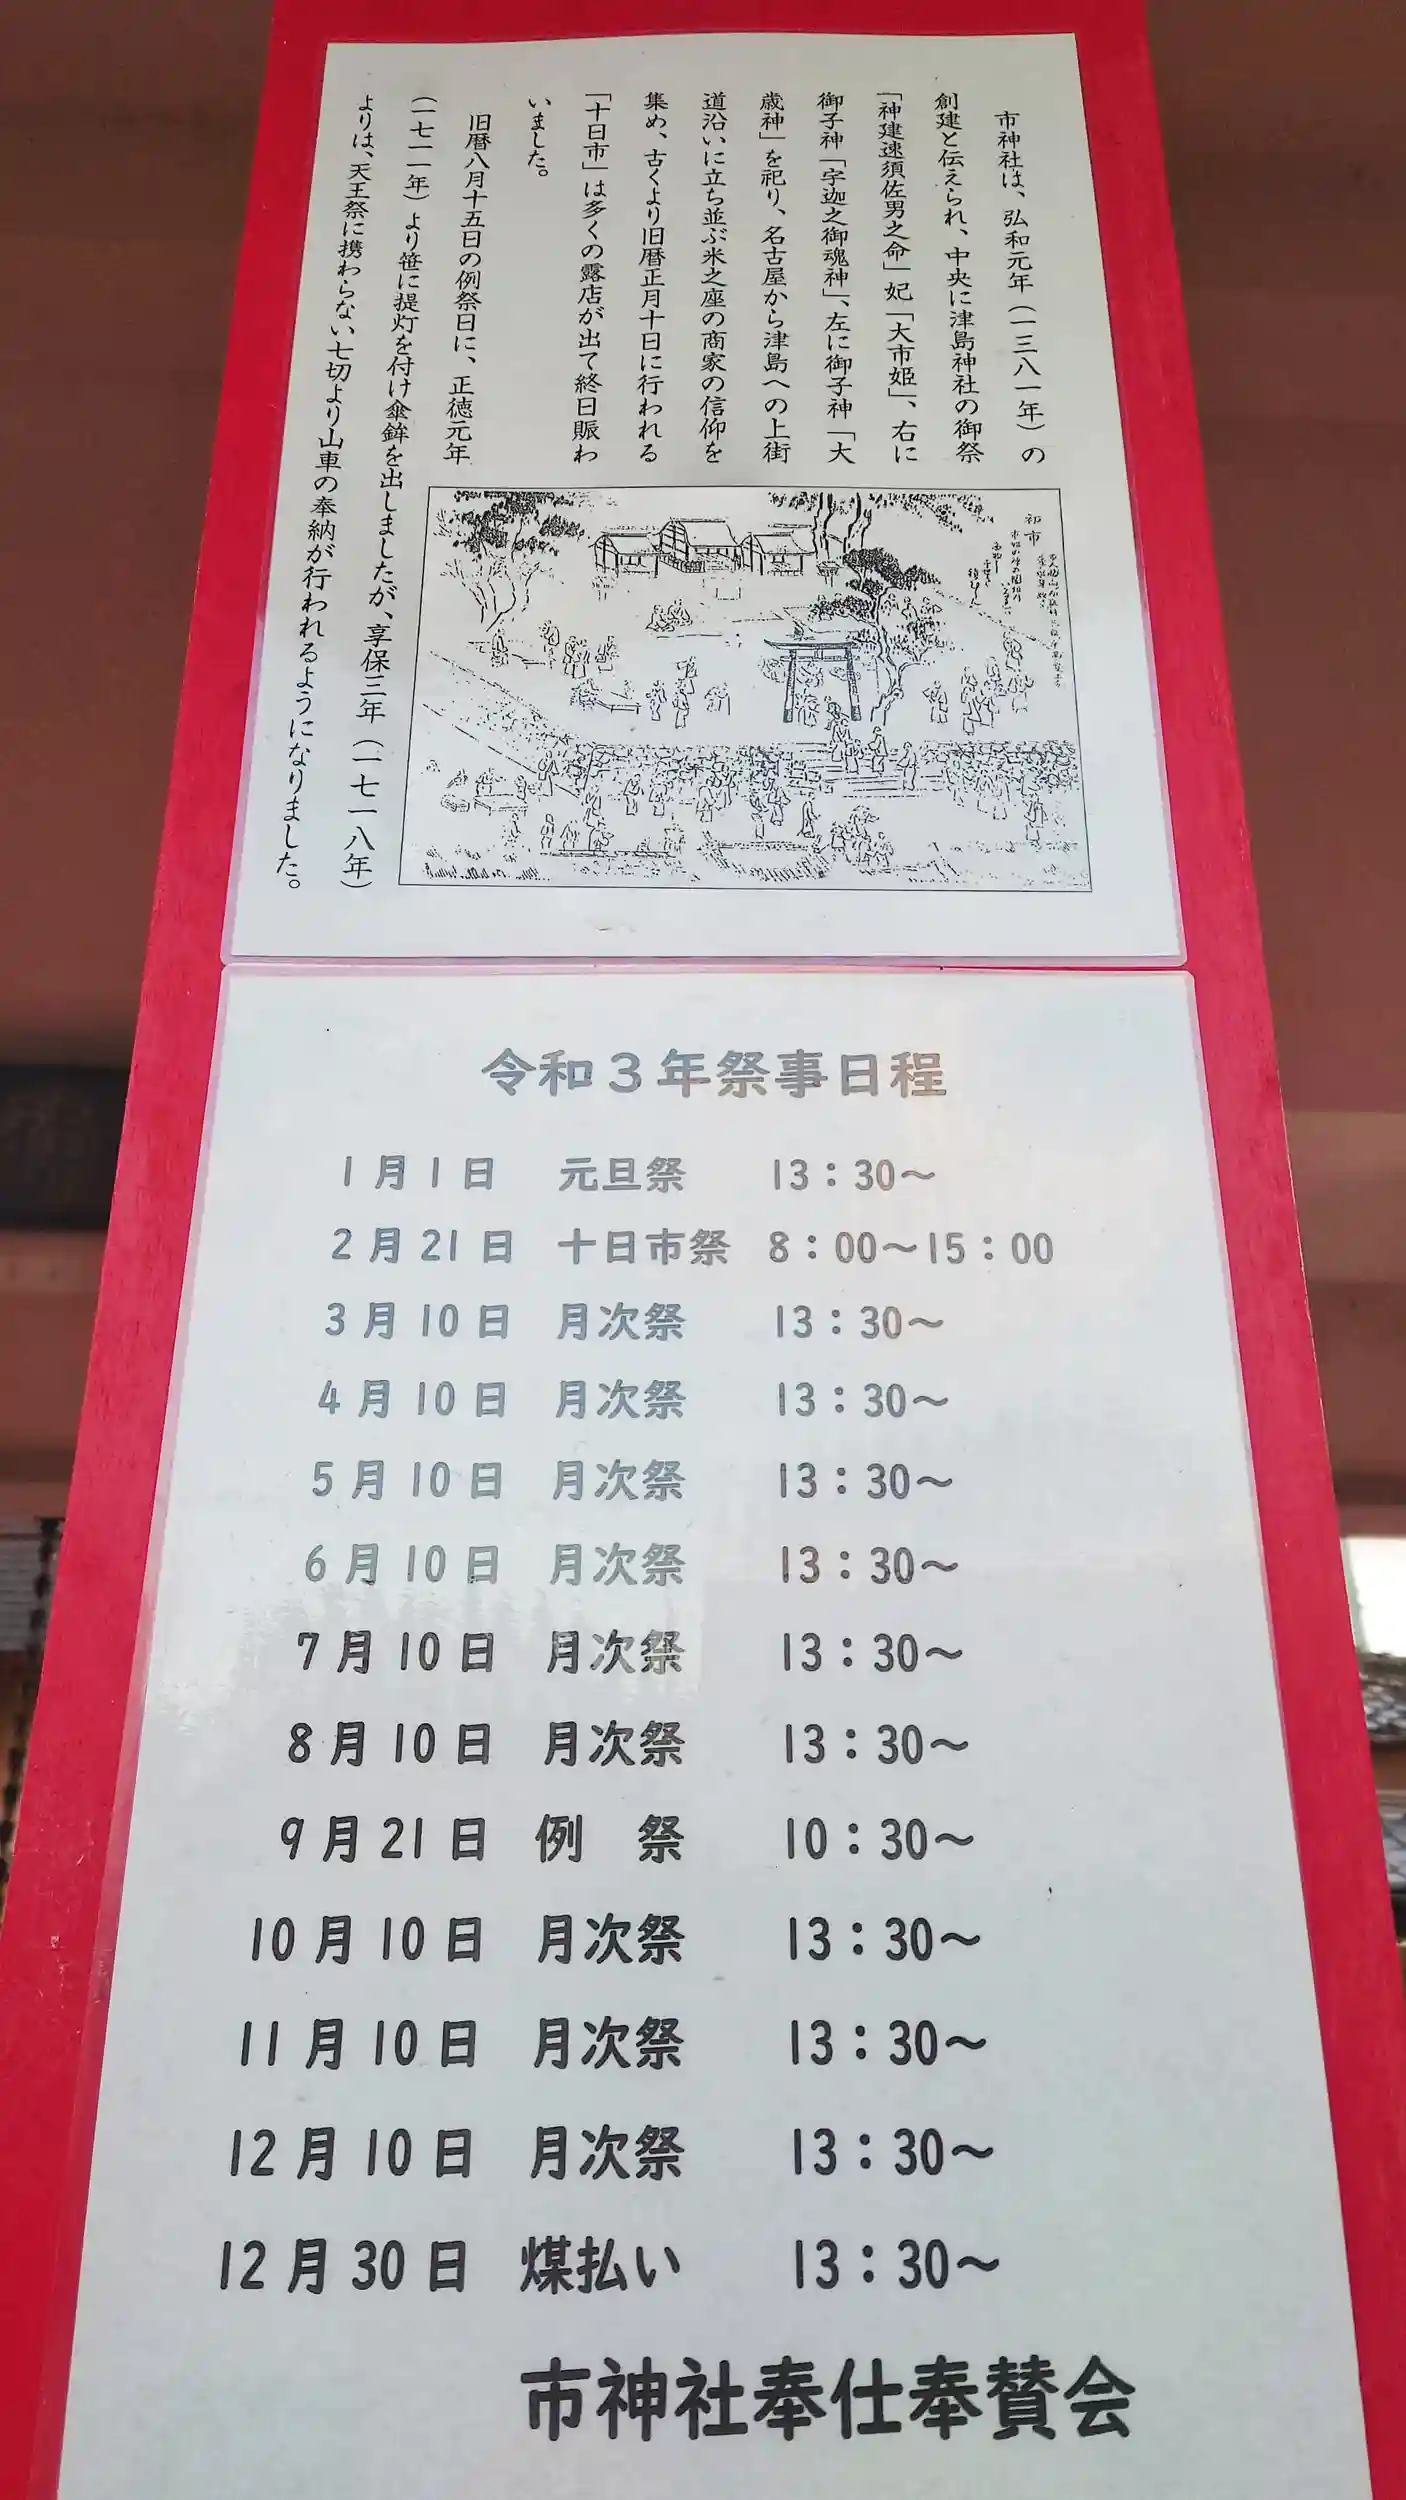 市神社は、弘和元年(一三八一年)の
創建と伝えられ、中央に津島神社の御祭
「神建速須佐男之命」妃「大市姫」、右に
御子神「宇迦之御魂神」、左に御子神「大
歳神」を祀り、名古屋から津島への上街
道沿いに立ち並ぶ米之座の商家の信仰を
集め、古くより旧暦正月十日に行われる
「十日市」は多くの露店が出て終日賑わ
いました。
旧暦八月十五日の例祭日に、正徳元年
(一七一一年)より笹に提灯を付け傘鉾を出しましたが、享保三年(一七一八年)
よりは、天王祭に携わらない七切より山車の奉納が行われるようになりました。
初市
令和3年祭事日程
1月1日 元旦祭 13:30～
2月21日 十日市祭 8:00～15:00
3月10日 月次祭 13:30～
4月10日 月次祭 13:30～
5月10日 月次祭 13:30～
6月10日 月次祭 13:30～
7月10日 月次祭 13:30～
8月10日 月次祭 13:30～
9月21日 例 祭 10:30～
10月10日 月次祭 13:30～
11月10日 月次祭 13:30～
12月10日 月次祭 13:30～
12月30日 煤払い 13:30～
市神社奉仕奉賛会